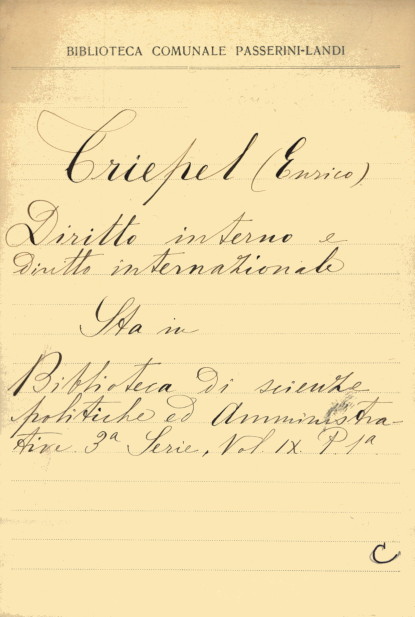 BIBLIOTECA COMUNALE PASSERINI-LANDI
Triepel (Enrico)
Diritto interno e
diritto internazionale
Sta in
Biblioteca di scienze
politiche ed Amministra-
tive. 3ª Serie, Vol. IX. P. 1ª
C